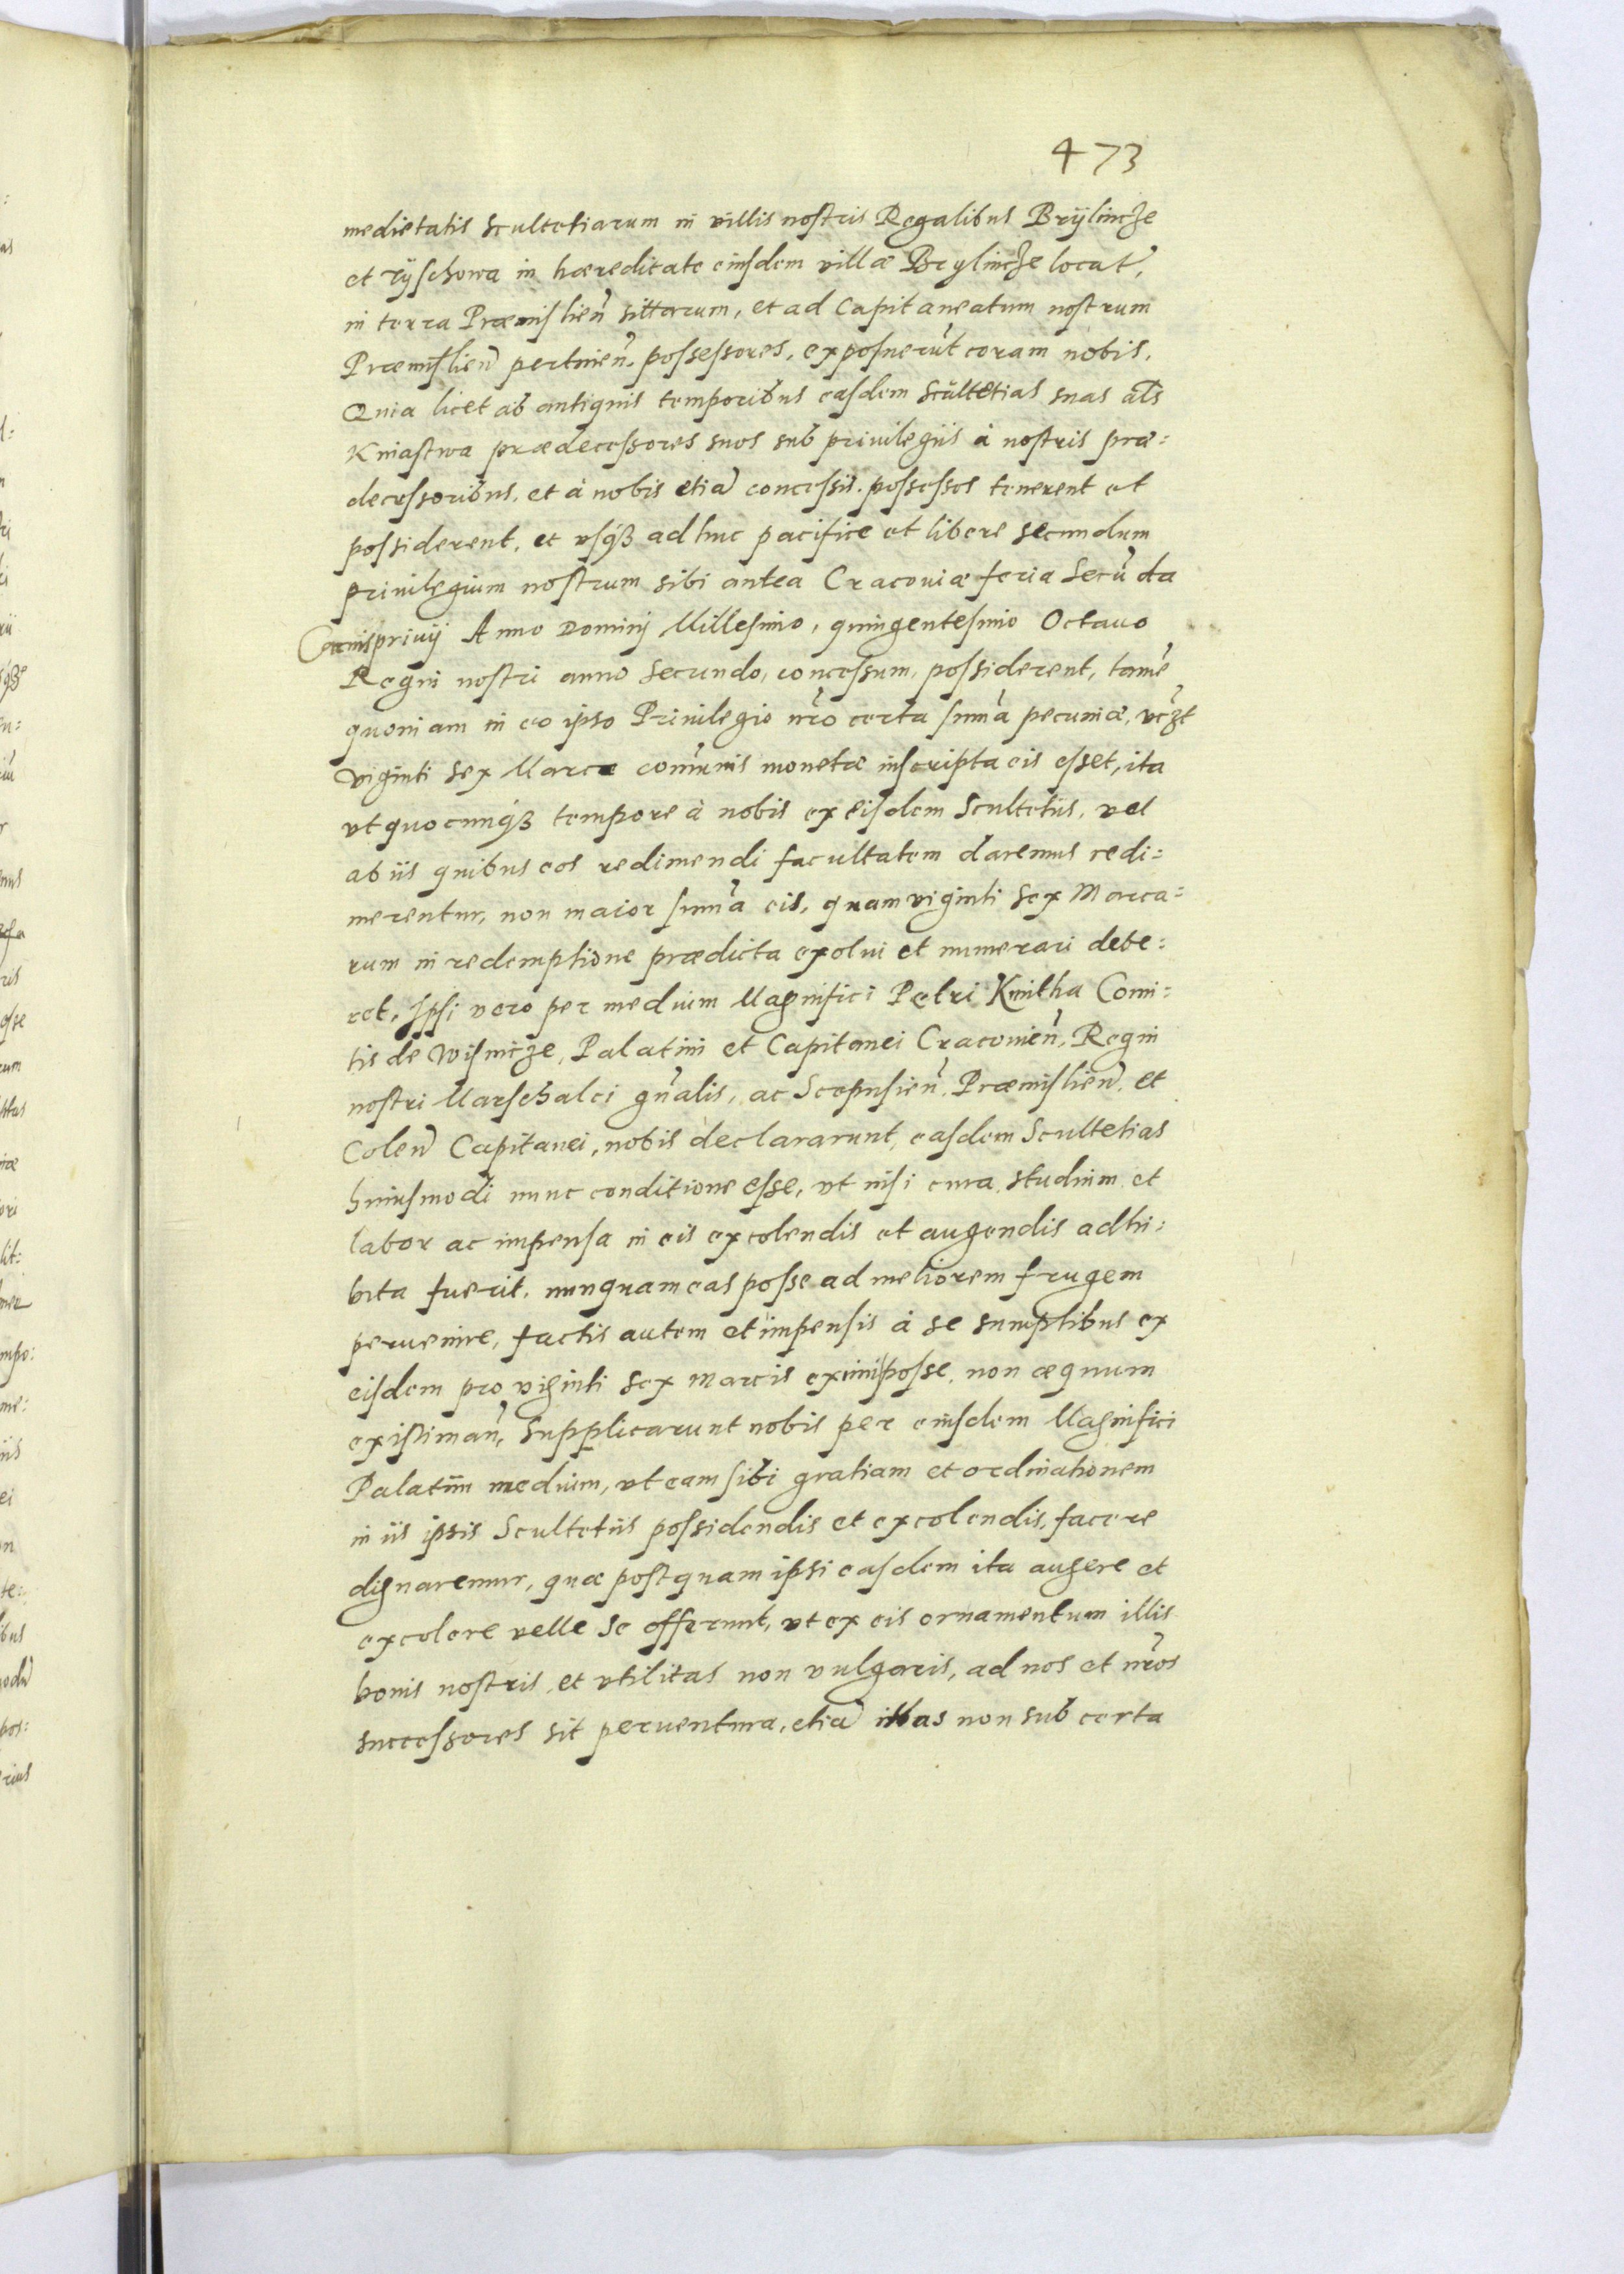 473
medietatis Scultetiarum in villis nostris Regalibus Brÿlincze
et rÿschowa in hæreditate eiusdem villæ Brylincze locat,
in terra Præmislien sittarum, et ad Capitaneatum nostrum
Præmislien pertinen. possessores, exposuerūt coram nobis,
Quia licet ab antiquis temporibus easdem Scultetias suas als
Kniastwa prædecessores suos sub priuilegiis à nostris præ:
decessoribus, et à nobis etiā concessis. possesses tenerent et
possiderent, et vsq3 adhuc pacifice et libere secundum
priuilegium nostrum sibi antea Cracouiæ feria Secūda
Carnispriuij Anno Dominj Millesimo, quingentesimo Octauo
Regni nostri anno Secundo, concessum, possiderent, tamē
quoniam in eo ipso Priuilegio nrō certa summa pecuniæ, vczt
viginti sex Marcæ comunis monetæ inscripta eis esset, ita
vt quocunq3 tempore à nobis ex eisdem Scultetiis, vel
ab iis quibus eos redimendi facultatem daremus redi:
merentur, non maior summa eis, quam viginti sex Marca:
rum in redemptione prædicta exolui et numerari debe:
ret, Ipsi vero per medium Magnifici Petri Kmitha Comi:
tis de Wisnicze, Palatini et Capitanei Cracouien, Regni
nostri Marschalci gnalis, ac Scepusien, Præmislien, et
Colen Capitanei, nobis declararunt, easdem Scultetias
huiusmodi nunc conditione esse, vt nisi cura, studium et
labor ac impensa in eis excolendis et augendis adhi:
bita fuerit, nunquam eas posse ad meliorem frugem
peruenire, factis autem et impensis à se sumptibus ex
eisdem pro viginti sex marcis eximi posse, non æquum
existiman, Supplicarunt nobis per eiusdem Magnifici
Palatini medium, vt eam sibi gratiam et ordinationem
in iis ipsis Scultetiis possidendis et excolendis, facere
dignaremur, quæ postquam ipsi easdem ita augere et
excolere velle se offerunt, vt ex eis ornamentum illis
bonis nostris, et vtilitas non vulgaris, ad nos et nrōs
successores sit peruentura, etiā illas non sub certa